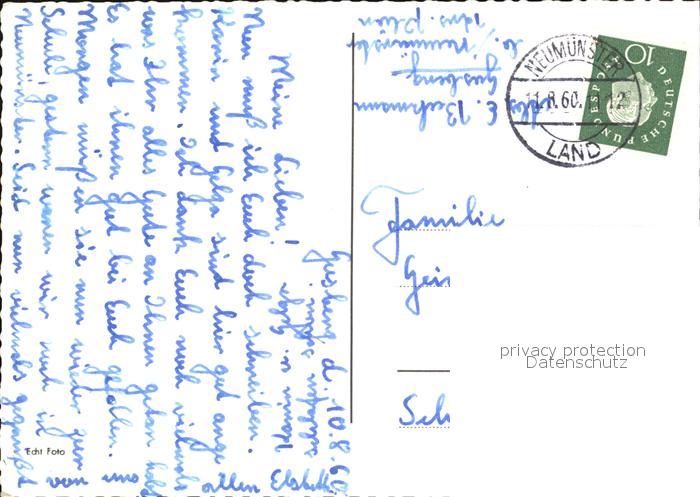 Gusberg d. 10.8.60
Meine Lieben!
Nun muß ich Euch doch schreiben.
Karin und Helga sind hier gut ange
kommen. Ich danke Euch noch vielmals
was Ihr alles Gute an Ihnen getan habt
Es hat ihnen gut bei Euch gefallen.
Morgen müßen sie nun wieder zur
Schule, gestern waren wir noch in
Neumünster. Seid nun vielmals gegrüßt
von uns allen Elsbeth
Echt Foto
E. Buhmann
Gusberg
Neumünster
Familie
Gei
Sch
NEUMÜNSTER
11.8.60. 12
LAND
DEUTSCHE BUNDESPOST
10
privacy protection
Datenschutz